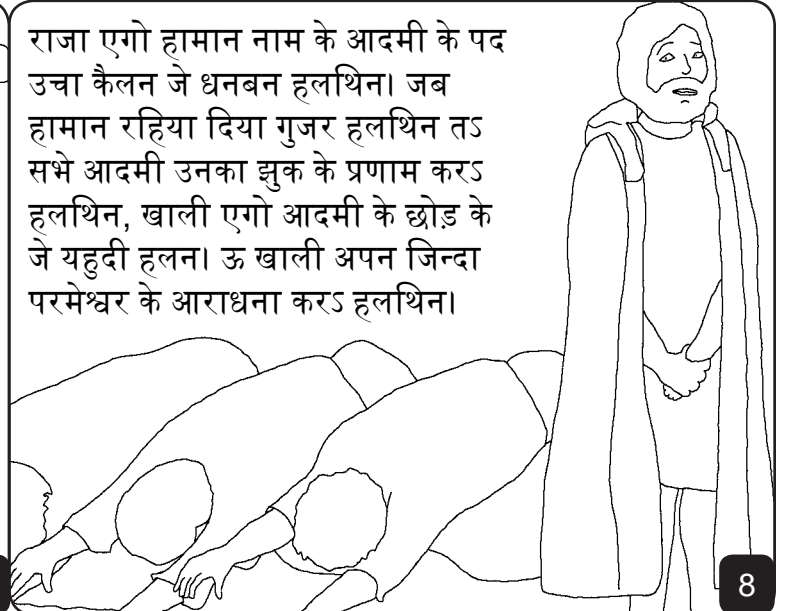 राजा एगो हामान नाम के आदमी के पद
उचा कैलन जे धनबन हलथिन। जब
हामान रहिया दिया गुजर हलथिन तऽ
सभे आदमी उनका झुक के प्रणाम करऽ
हलथिन, खाली एगो आदमी के छोड़ के
जे यहुदी हलन। ऊ खाली अपन जिन्दा
परमेश्वर के आराधना करऽ हलथिन।
8